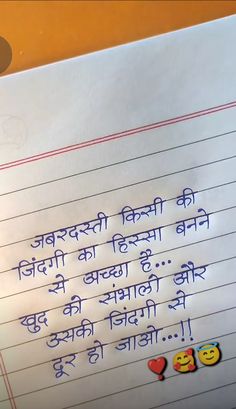 जबरदस्ती किसी की
जिंदगी का हिस्सा बनने
से अच्छा है...
खुद को संभालो और
उसकी जिंदगी से
दूर हो जाओ...!!